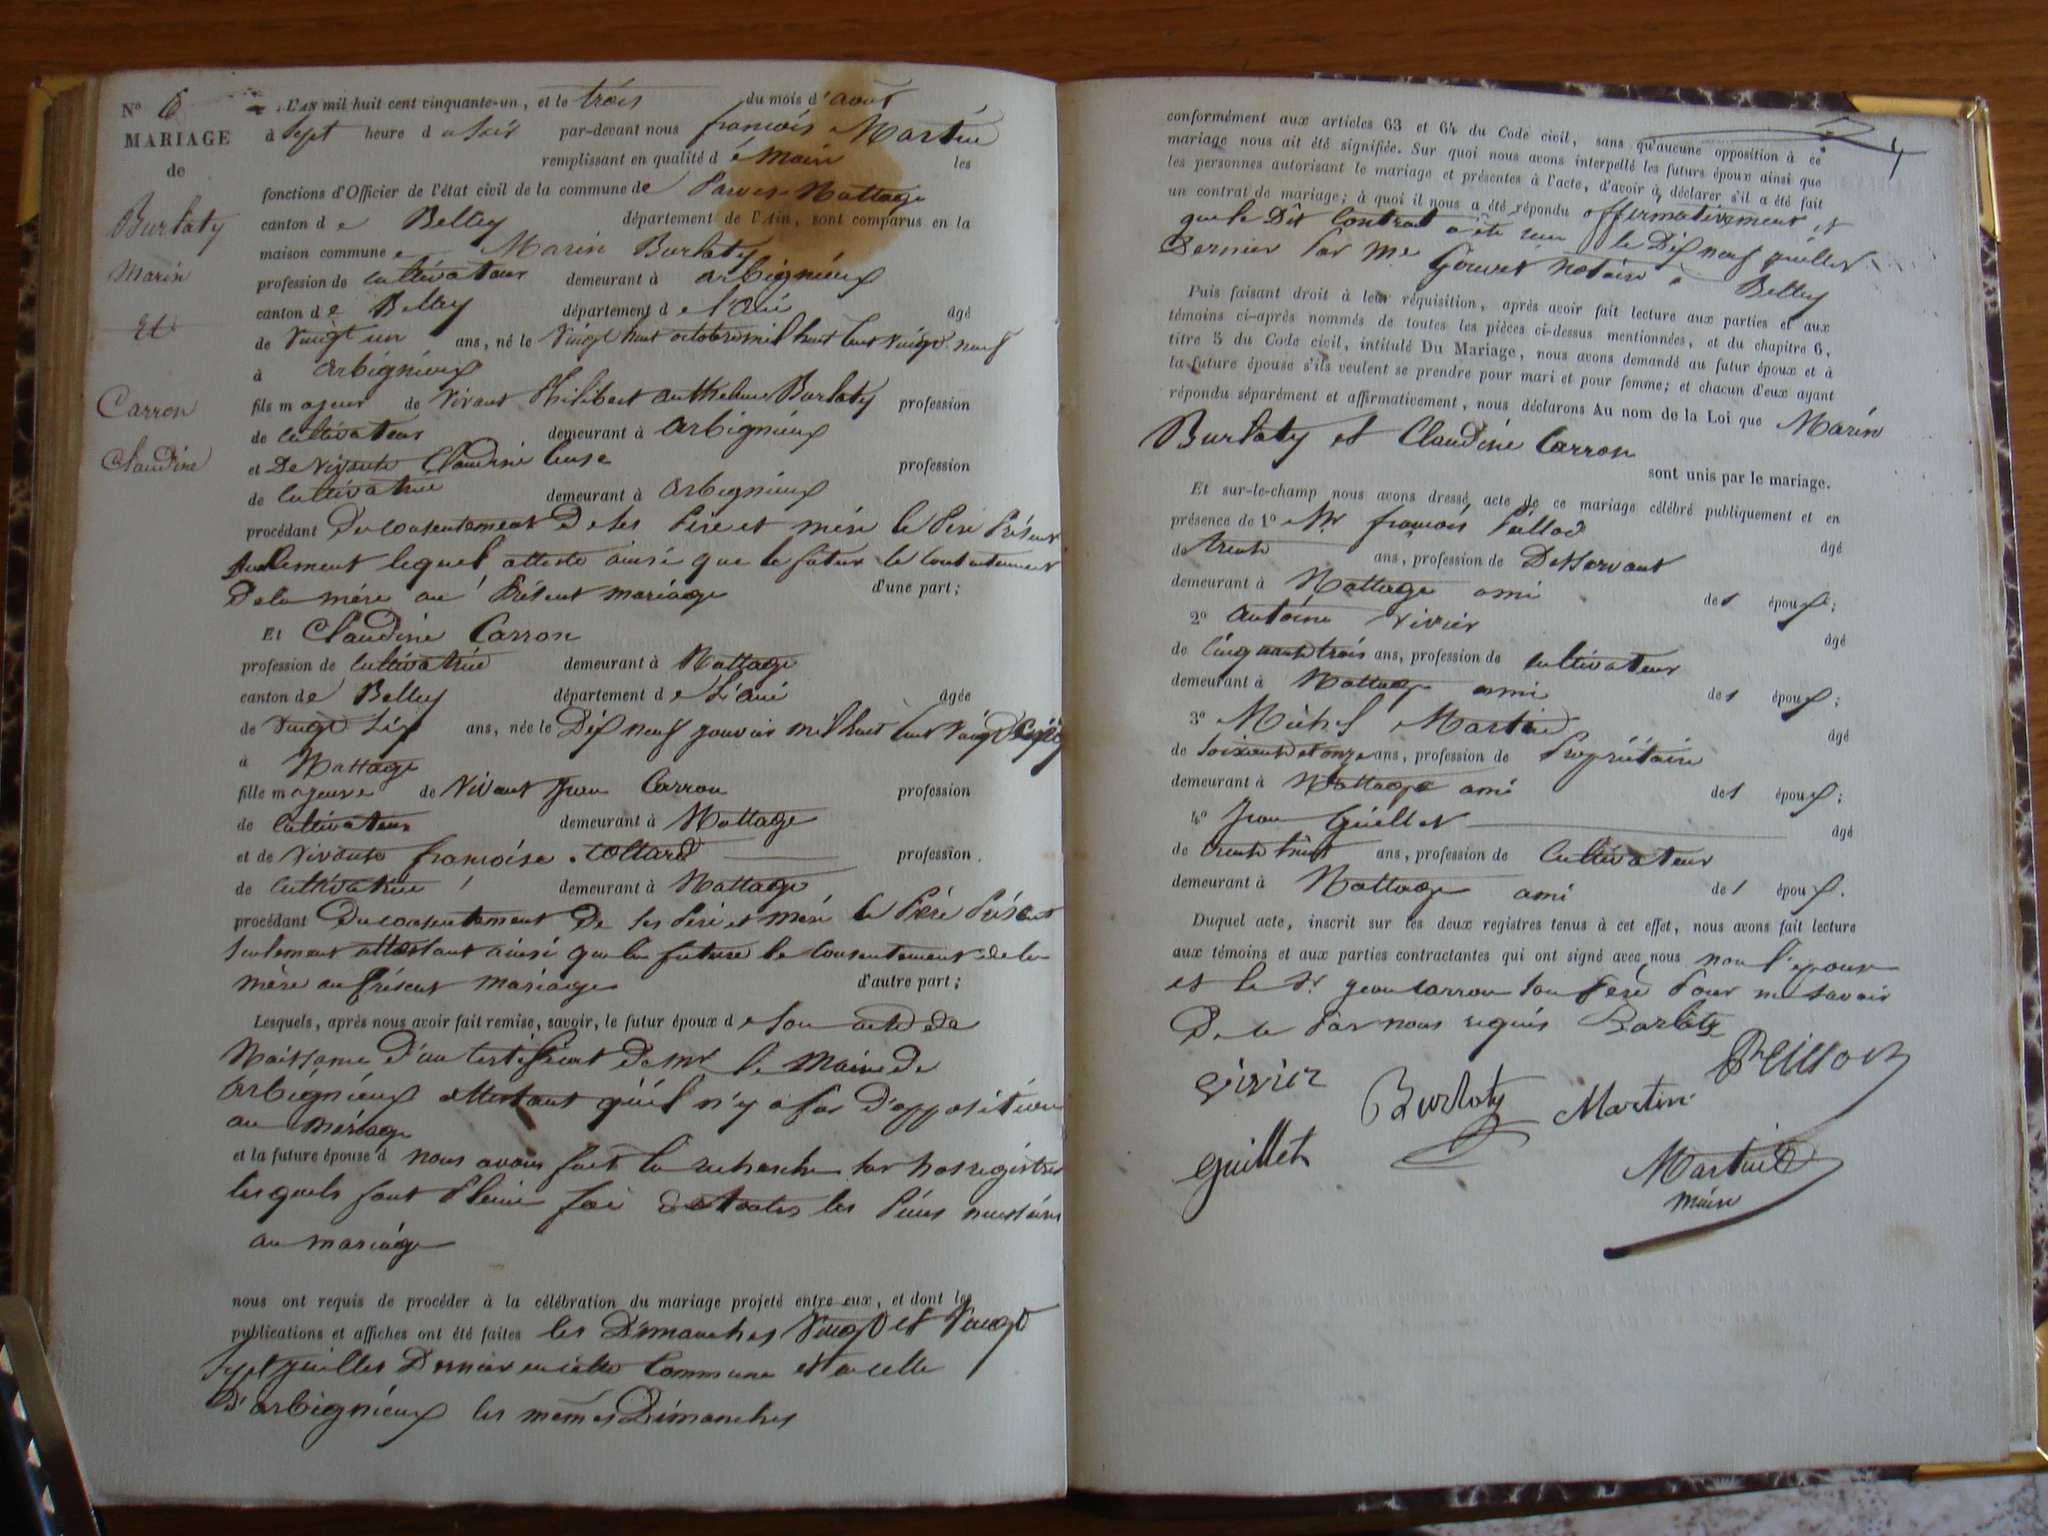 N° 6
MARIAGE
de
Burlaty
Marin
Et
Carron
Claudine
L'AN mil huit cent cinquante-un, et le trois du mois d'août
à sept heure d u soir par-devant nous françois Martin
remplissant en qualité d e Maire les
fonctions d'Officier de l'état civil de la commune de Parves-Nattage
canton d e Belley département de l'Ain, sont comparus en la
maison commune Marin Burlaty
profession de cultivateur demeurant à arbignieux
canton d e Belley département d e l'ain âgé
de vingt un ans, né le vingt huit octobre mil huit cent vingt neuf
à arbignieux
fils majeur de vivant Philibert anthelme Burlaty profession
de cultivateur demeurant à arbignieux
et De vivante Claudine profession
de cultivatrice demeurant à arbignieux
procédant Du consentement De ses Père et mère le Père Présent
seulement lequel atteste ainsi que le futur le contentement
De la mère au Présent mariage d'une part;
Et Claudine Carron
profession de cultivatrice demeurant à Nattage
canton de Belley département d e L'ain âgée
de vingt six ans, née le Dix neuf janvier mil huit cent vingt cinq
à Nattage
fille majeure de vivant Jean Carron profession
de cultivateur demeurant à Nattage
et de vivante françoise Collard profession
de cultivatrice demeurant à Nattage
procédant Du consentement De ses Père et mère le Père Présent
seulement attestant ainsi que la future le consentement de la
mère au Présent mariage d'autre part;
Lesquels, après nous avoir fait remise, savoir, le futur époux d e son acte de
Naissance d'un certificat De Mr le Maire de
arbignieux attestant qu'il n'y a pas D'opposition
au mariage
et la future épouse d nous avons fait la recherche sur nos registres
lesquels font Pleine foi de toutes les Pièces nécessaires
au mariage
nous ont requis de procéder à la célébration du mariage projeté entre eux, et dont les
publications et affiches ont été faites les Dimanches vingt et vingt
sept juillet Dernier en cette commune et en celle
D'arbignieux les mêmes Dimanches
conformément aux articles 63 et 64 du Code civil, sans qu'aucune opposition à ce
mariage nous ait été signifiée. Sur quoi nous avons interpellé les futurs époux ainsi que
les personnes autorisant le mariage et présentes à l'acte, d'avoir à déclarer s'il a été fait
un contrat de mariage; à quoi il nous a été répondu affirmativement et
que le Dit Contrat a été reçu le Dix neuf juillet
Dernier Par Me notaire à Belley
Puis faisant droit à leur réquisition, après avoir fait lecture aux parties et aux
témoins ci-après nommés de toutes les pièces ci-dessus mentionnées, et du chapitre 6,
titre 5 du Code civil, intitulé Du Mariage, nous avons demandé au futur époux et à
la future épouse s'ils veulent se prendre pour mari et pour femme; et chacun d'eux ayant
répondu séparément et affirmativement, nous déclarons Au nom de la Loi que Marin
Burlaty et Claudine Carron
sont unis par le mariage.
Et sur-le-champ nous avons dressé acte de ce mariage célébré publiquement et en
présence de 1° Mr françois âgé
de trente ans, profession de Desservant
demeurant à Nattage ami des époux;
2° antoine vivier âgé
de cinquante trois ans, profession de cultivateur
demeurant à Nattage ami des époux;
3° Michel Martin âgé
de soixante et onze ans, profession de Propriétaire
demeurant à Nattage ami des époux;
4° Jean Guillet âgé
de trente huit ans, profession de cultivateur
demeurant à Nattage ami des époux.
Duquel acte, inscrit sur les deux registres tenus à cet effet, nous avons fait lecture
aux témoins et aux parties contractantes qui ont signé avec nous non l'épouse
et le Sr jean carron son Père Pour ne savoir
De ce Par nous requis Burlaty
vivier Burlaty Martin
guillet Martin
maire